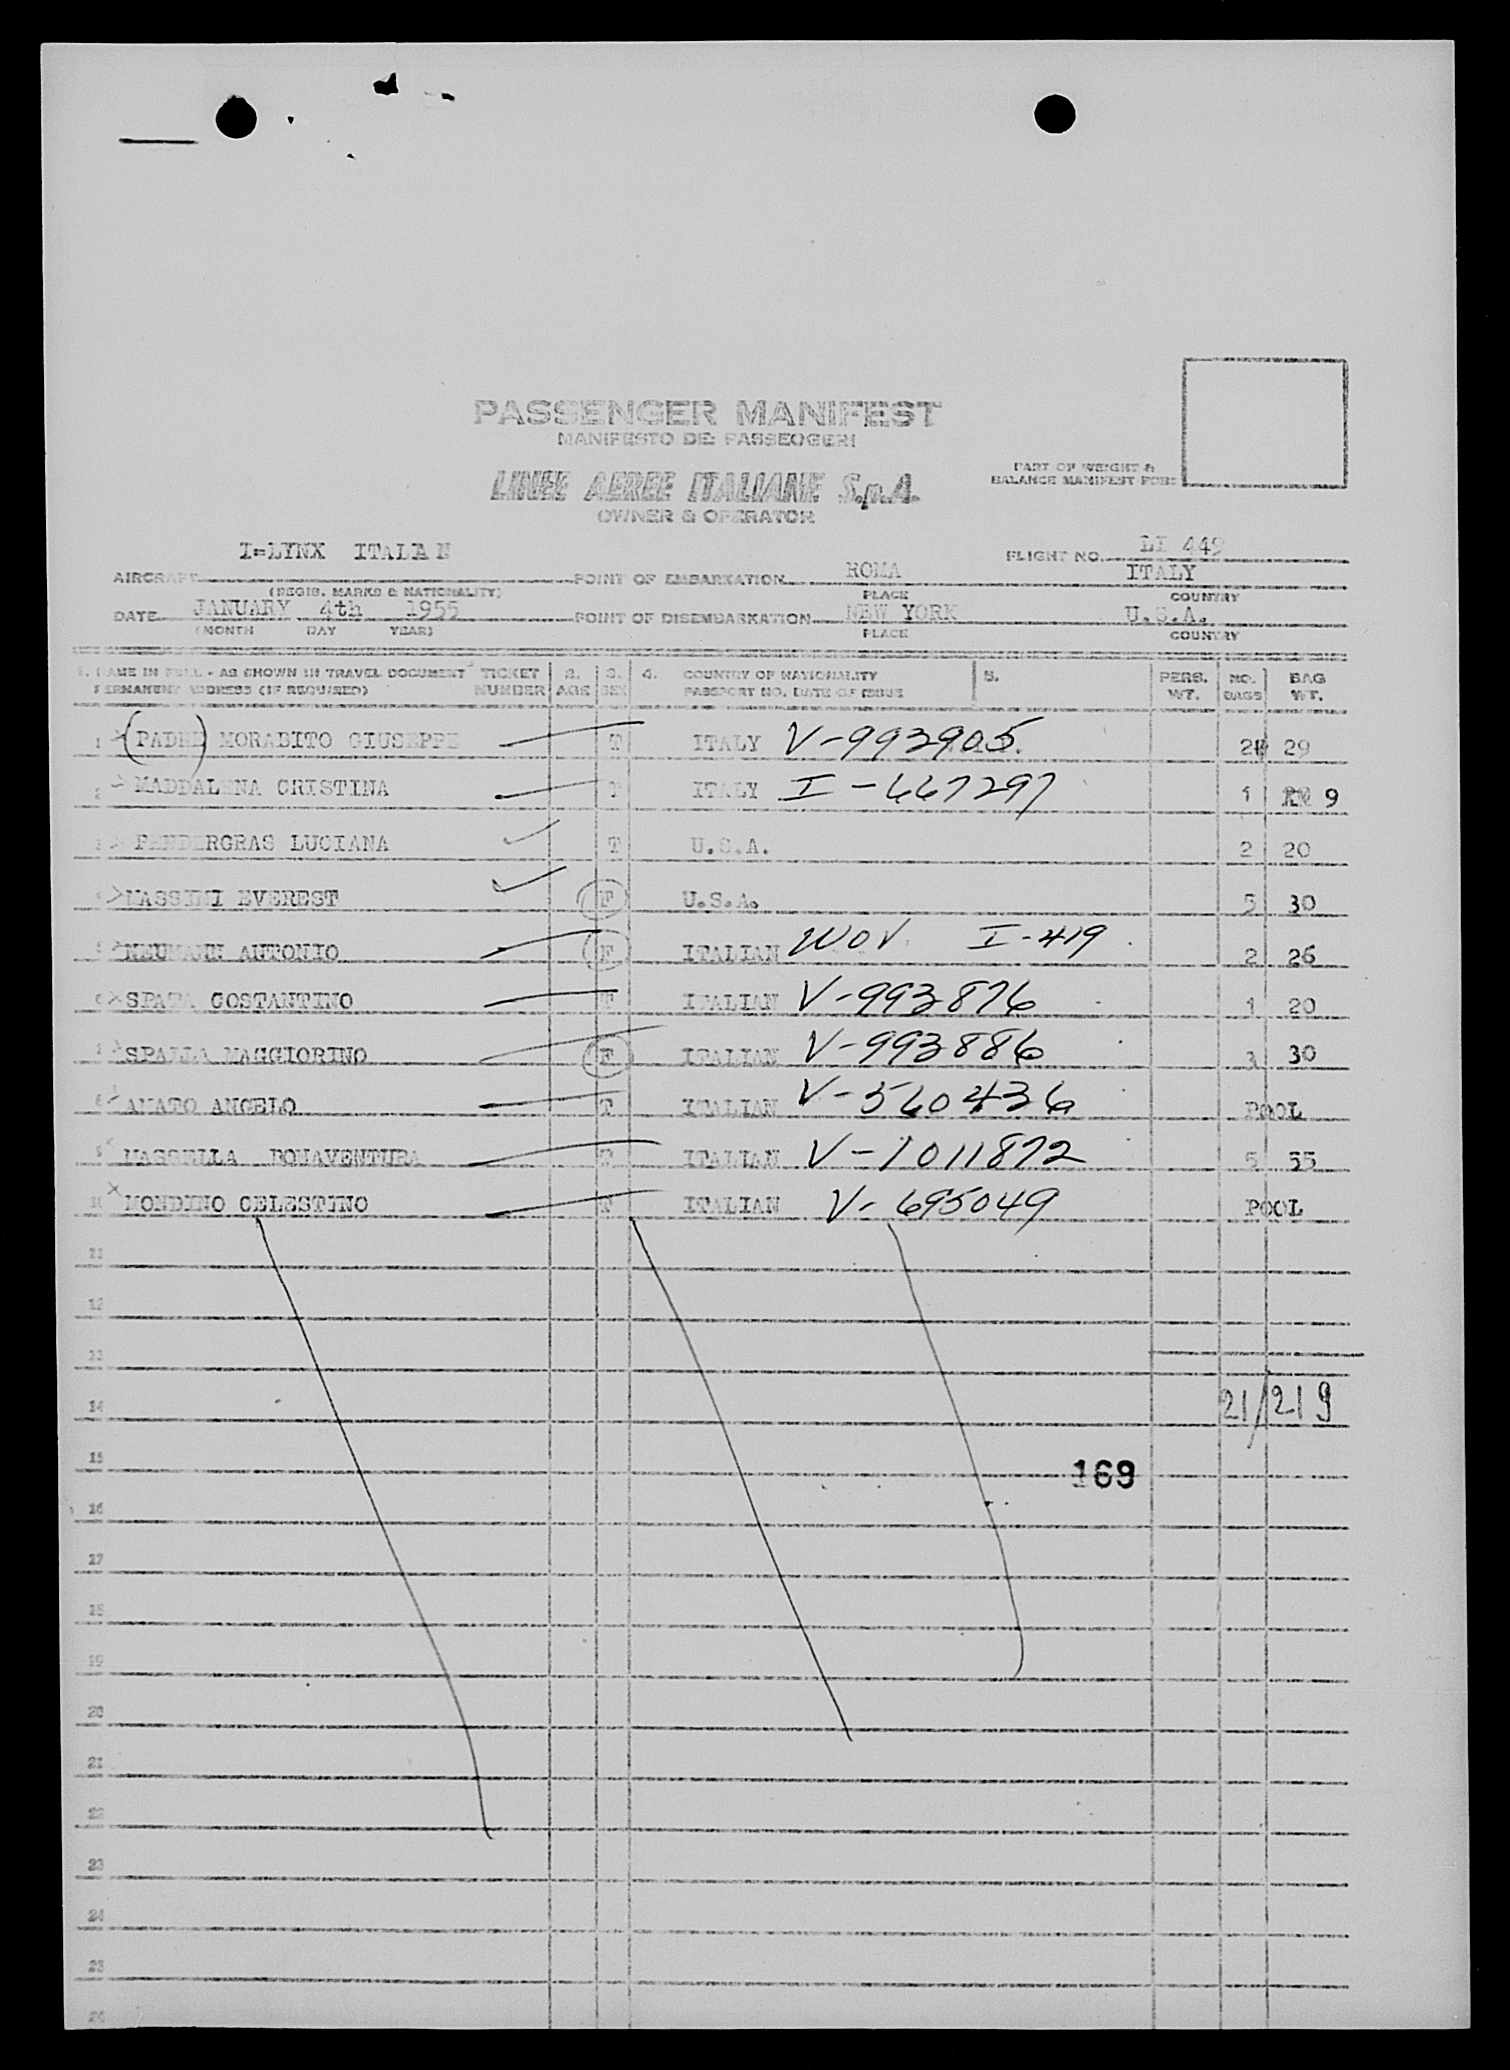 PASSENGER MANIFEST
MANIFESTO DEI PASSEGGERI
LINEE AEREE ITALIANE S.p.A.
OWNER & OPERATOR
PART OF WEIGHT &
BALANCE MANIFEST FORM
I-LYNX ITALIAN
FLIGHT NO. LI 449
AIRCRAFT POINT OF EMBARKATION ROMA ITALY
(REGIS. MARKS & NATIONALITY) PLACE COUNTRY
DATE JANUARY 4th 1955 POINT OF DISEMBARKATION NEW YORK U.S.A.
(MONTH DAY YEAR) PLACE COUNTRY
1. NAME IN FULL - AS SHOWN IN TRAVEL DOCUMENT TICKET 2. 3. 4. COUNTRY OF NATIONALITY 5. PERS. NO. BAG
PERMANENT ADDRESS (IF REQUIRED) NUMBER AGE SEX PASSPORT NO. DATE OF ISSUE WT. BAGS WT.
1 (PADRE) MORABITO GIUSEPPE T ITALY V-993905 2 29
2 MADDALENA CRISTINA T ITALY I-667297 1 9
3 PENDERGRAS LUCIANA T U.S.A. 2 20
4 MASSIMI EVEREST F U.S.A. 5 30
5 NEUMANN ANTONIO F ITALIAN WOV I-419 2 26
6 SPATA COSTANTINO T ITALIAN V-993876 1 20
7 SPALLA MAGGIORINO F ITALIAN V-993886 3 30
8 AMATO ANGELO T ITALIAN V-560436 POOL
9 MASSELLA BONAVENTURA T ITALIAN V-1011872 5 55
10 MONDINO CELESTINO T ITALIAN V-695049 POOL
11
12
13
14 21/219
15 169
16
17
18
19
20
21
22
23
24
25
26